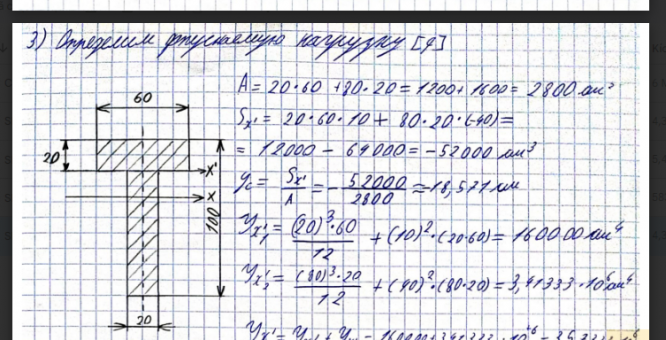 3) Определим допускаемую нагрузку [q]
60
20
x'
x
100
20
A = 20·60 + 80·20 = 1200 + 1600 = 2800 мм²
Sx' = 20·60·10 + 80·20·(-40) =
= 12000 - 64000 = -52000 мм³
yc = Sx'/A = - 52000/2800 ≈ -18,571 мм
Yx'₁ = (20)³·60/12 + (10)²·(20·60) = 160000 мм⁴
Yx'₂ = (80)³·20/12 + (40)²·(80·20) = 3,41333·10⁶ мм⁴